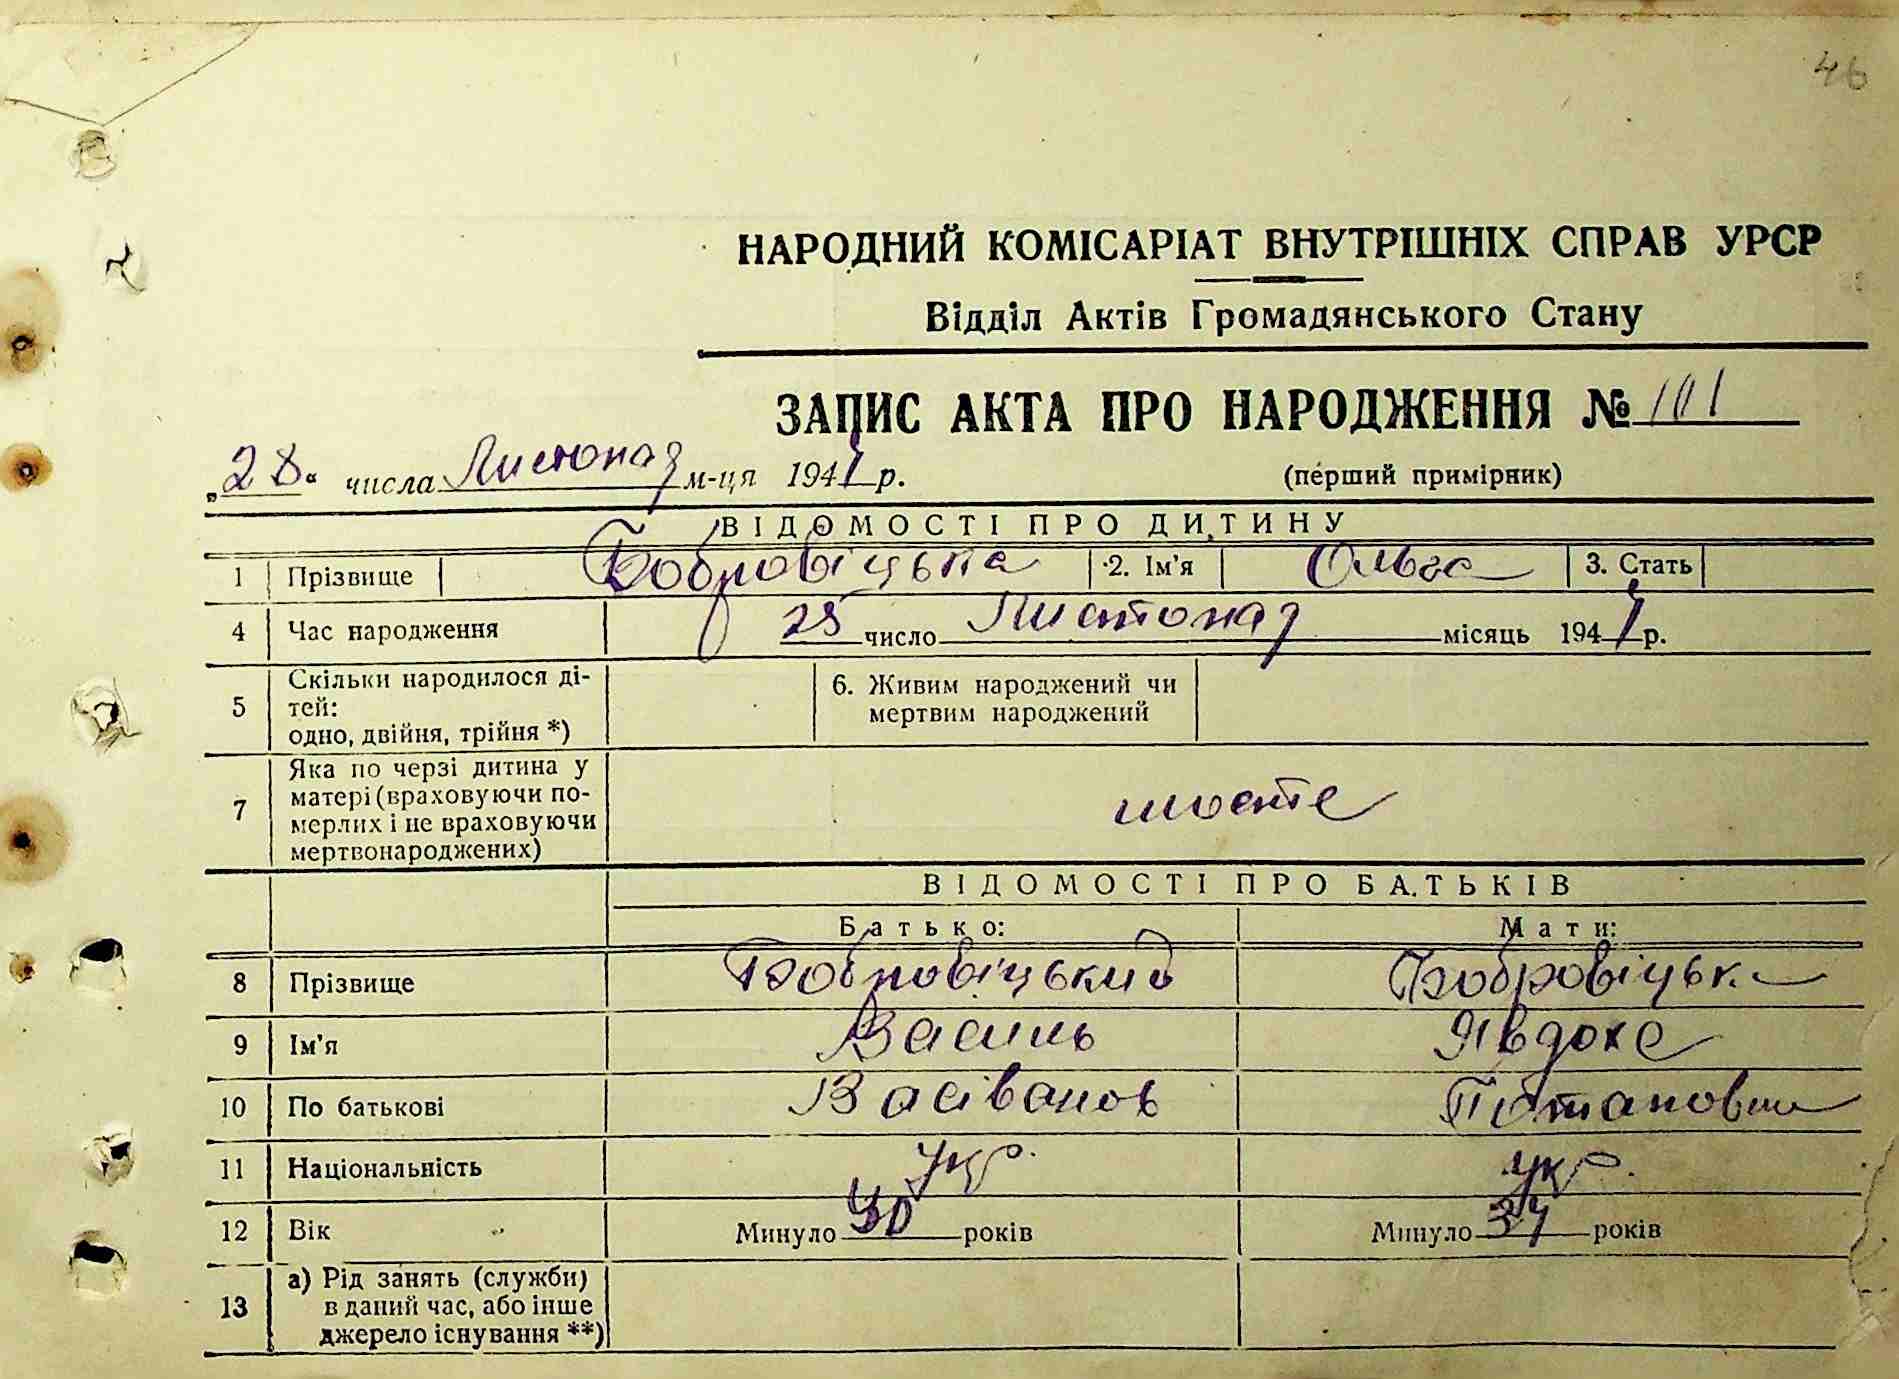 46
НАРОДНИЙ КОМІСАРІАТ ВНУТРІШНІХ СПРАВ УРСР
Відділ Актів Громадянського Стану
ЗАПИС АКТА ПРО НАРОДЖЕННЯ № 101
„28“ числа Листопад м-ця 1941 р. (перший примірник)
ВІДОМОСТІ ПРО ДИТИНУ
1 Прізвище Бобровіцька 2. Ім'я Ольга 3. Стать
4 Час народження 25 число Листопад місяць 1941 р.
5 Скільки народилося ді-
тей:
одно, двійня, трійня *)
6. Живим народжений чи
мертвим народжений
7 Яка по черзі дитина у
матері (враховуючи по-
мерлих і не враховуючи
мертвонароджених)
шосте
ВІДОМОСТІ ПРО БАТЬКІВ
Батько: Мати:
8 Прізвище Бобровіцький Бобровіцька
9 Ім'я Василь Явдоха
10 По батькові
11 Національність укр. укр.
12 Вік Минуло 40 років Минуло років
13 а) Рід занять (служби)
в даний час, або інше
джерело існування **)